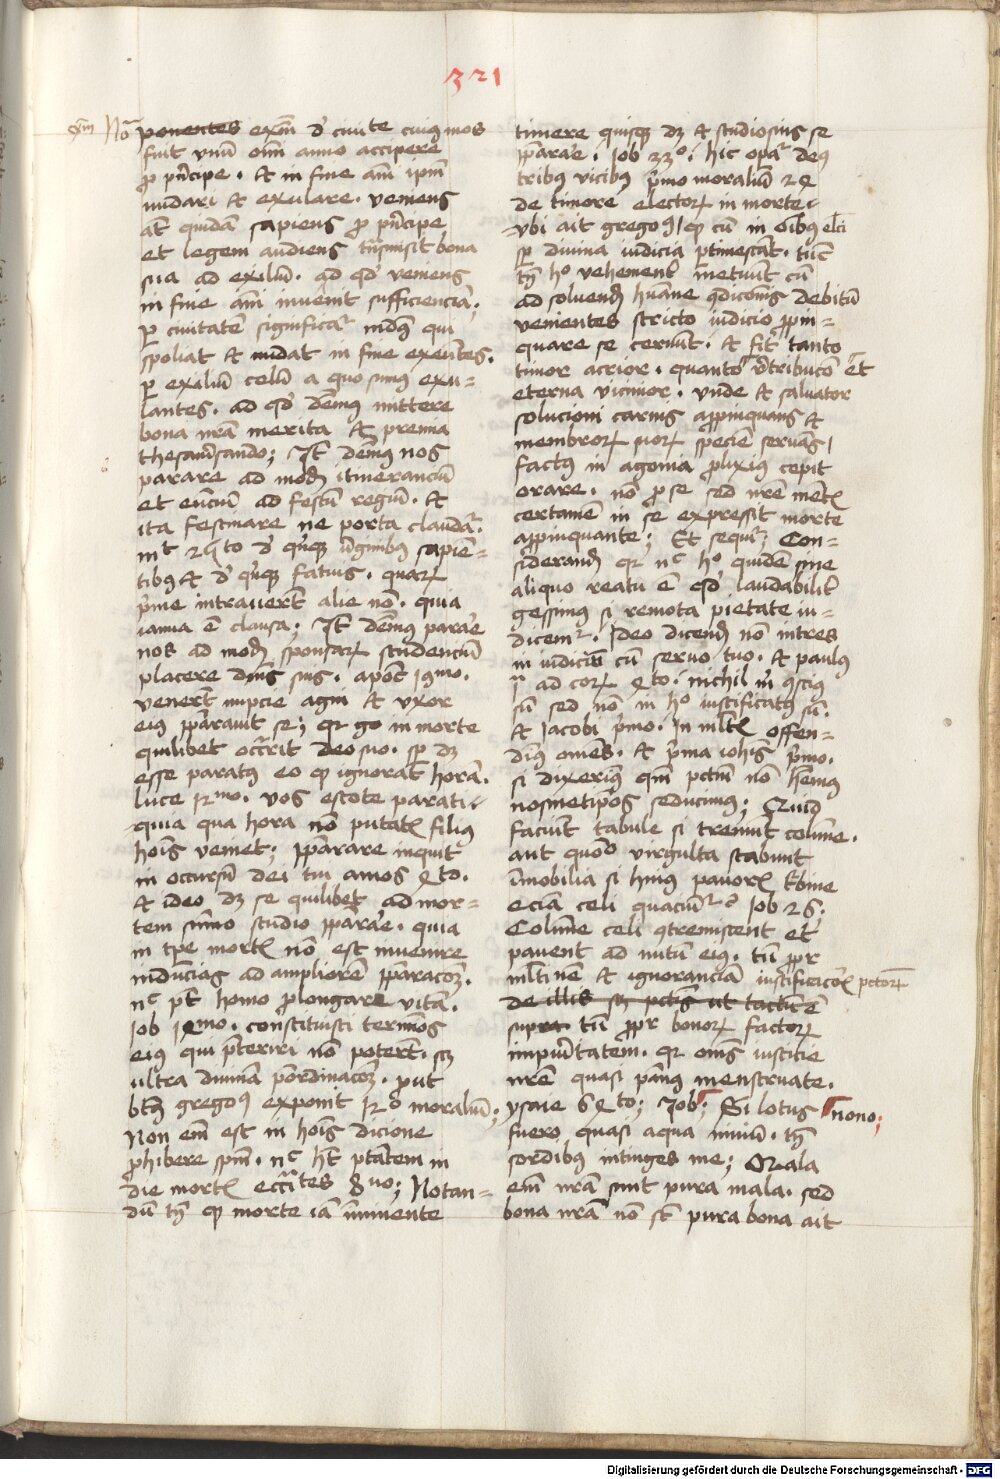 321
exm̄ Nōͣ ponentes exm̄ d' ciuite cuiꝰ mos
fuit vnū om̄i anno accipere
ꝓ pn̄cipe. Et in fine am̄ ipm̄
nudari et exulare. veniens
at̄ quidā sapiens ꝓ pn̄cipe
et legem audiens tn̄smisit bona
sua ad exiliū. ad qd' veniens
in fine am̄ inuenit sufficienciā.
ꝑ ciuitatē significat᷑ mdꝰ qui
spoliat et nudat in fine exeūtes.
ꝑ exiliū celū a quo sumꝰ exu-
lantes. ad qd' dem̄ꝰ mittere
bona nrā merita et premia
thesaurisando; It̄ dem̄ꝰ nos
parare ad modū itineranciū
et eūciū ad festū regiū. et
ita festinare ne porta claudat᷑.
mt̄ 25to d' qn̄qꝫ v̄ginibꝰ sapiē-
tibꝰ et d' qn̄qꝫ fatuis. quaꝝ
p̄me intrauerūt alie nō. quia
ianua ē clausa; It̄ dem̄ꝰ parare
nos ad modū sponsaꝝ studenciū
placere dn̄is suis. apoc̄ 19mo.
venerūt nupcie agni et vxor
eiꝰ ꝑparauit se; qr go in morte
quilibet occ̄rit deo suo. sꝑ dꝫ
esse paratꝰ eo ꝙ ignorat horā.
luce 12mo. vos estote parati
quia qua hora nō putatis filiꝰ
hoīs veniet; p̄parare inquit
in occursū dei tui amos 4to.
et ideo dꝫ se quilibet ad mor-
tem sūmo studio p̄parare. quia
in tp̄e mortis nō est inuenire
inducias ad ampliorē p̄paracōꝫ.
nc̄ pt̄ homo ꝓlongare vitā.
Iob 14mo. constituisti termīos
eiꝰ qui p̄teriri nō poterūt. scꝫ
ultra diuinā p̄ordinacōꝫ. put
btūs gregoꝰ exponit 12o moraliū;
Non em̄ est in hoīs dicione
ꝓhibere spm̄. nc̄ hꝫ ptātem in
die mortis ecc̄ites 8uo; Notan-
dū tn̄ ꝙ morte iā īminente
timere quisqꝫ dꝫ et studiosius se
p̄parare. Iob 33o. hic opat᷑ deꝰ
tribꝰ vicibꝰ p̄mo moraliū 24
de timore electoꝝ in morte
vbi ait gregoꝰ/ ꝙ cū in oībꝰ elc̄ti
sꝑ diuina iudicia ꝑtimescāt. tūc
tn̄ ho vehement᷑ metuūt cū
ad soluendū hūane 9dicōnis debitū
venientes stricto iudicio ꝓpin-
quare se cernūt. et fit tanto
timor acrior. quanto r̄tribucō et
eterna vicinior. vnde et saluator
solucioni carnis appinquans et
membroꝝ suoꝝ speciē seruans/
factꝰ in agonia ꝓlixiꝰ cepit
orare. nō ꝓ se sed nrē mētis
certamē in se expressit morte
appinquante; Et sequit᷑; Con-
siderandū qr nc̄ ho quidē sine
aliquo reatu ē qd' laudabilit᷑
gessimus si remota pietate iu-
dicem᷑. Ideo dicendū nō intres
in iudiciū cū seruo tuo. et paulꝰ
ja ad coꝝ 4to. nichil m̄ 9sciꝰ
sū sed nō in ho iustificatꝰ sū.
et Iacobi p̄mo. In mltis offen-
dimꝰ omēs. et p̄ma iohis p̄mo.
si dixerimꝰ qm̄ pctm̄ nō hēmꝰ
nosmetipos seducimus; Quid
faciūt tabule si tremūt colūne.
aut quōo virgulta stabunt
īmobilia si hmꝰ pauoris t̄bine
eciā celi quaciūt᷑? Iob 26.
Colūne celi 9tremiscent et
pauent ad nutū eiꝰ. tū ꝓpr
mltinē et ignoranciā iustificacōis pctoꝝ
de illis scꝫ pctis ut tactū ē
supra tū ꝓpr bonoꝝ factoꝝ
impuritatem. qr oīnis iusticie
nrē quasi pānꝰ menstruate.
ysaie 64to; Iob; Si lotus nono;
fuero quasi aqua niuiū. tn̄
sordibꝰ intinges me; Mala
em̄ nrā sunt pura mala. sed
bona nrā nō st̄ pura bona ait
Digitalisierung gefördert durch die Deutsche Forschungsgemeinschaft - DFG